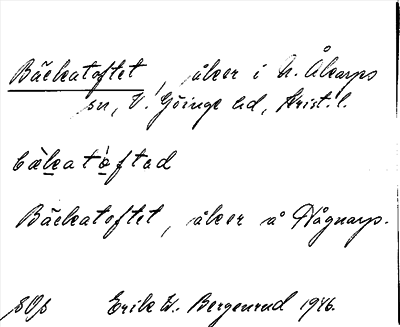 Bäckatoftet, åker i N. Åkarps
sn, V. Göinge hd, Krist. l.
bäkatòftad
Bäckatoftet, åker å Hågnarp.
Erik W. Bergenrud 1946.